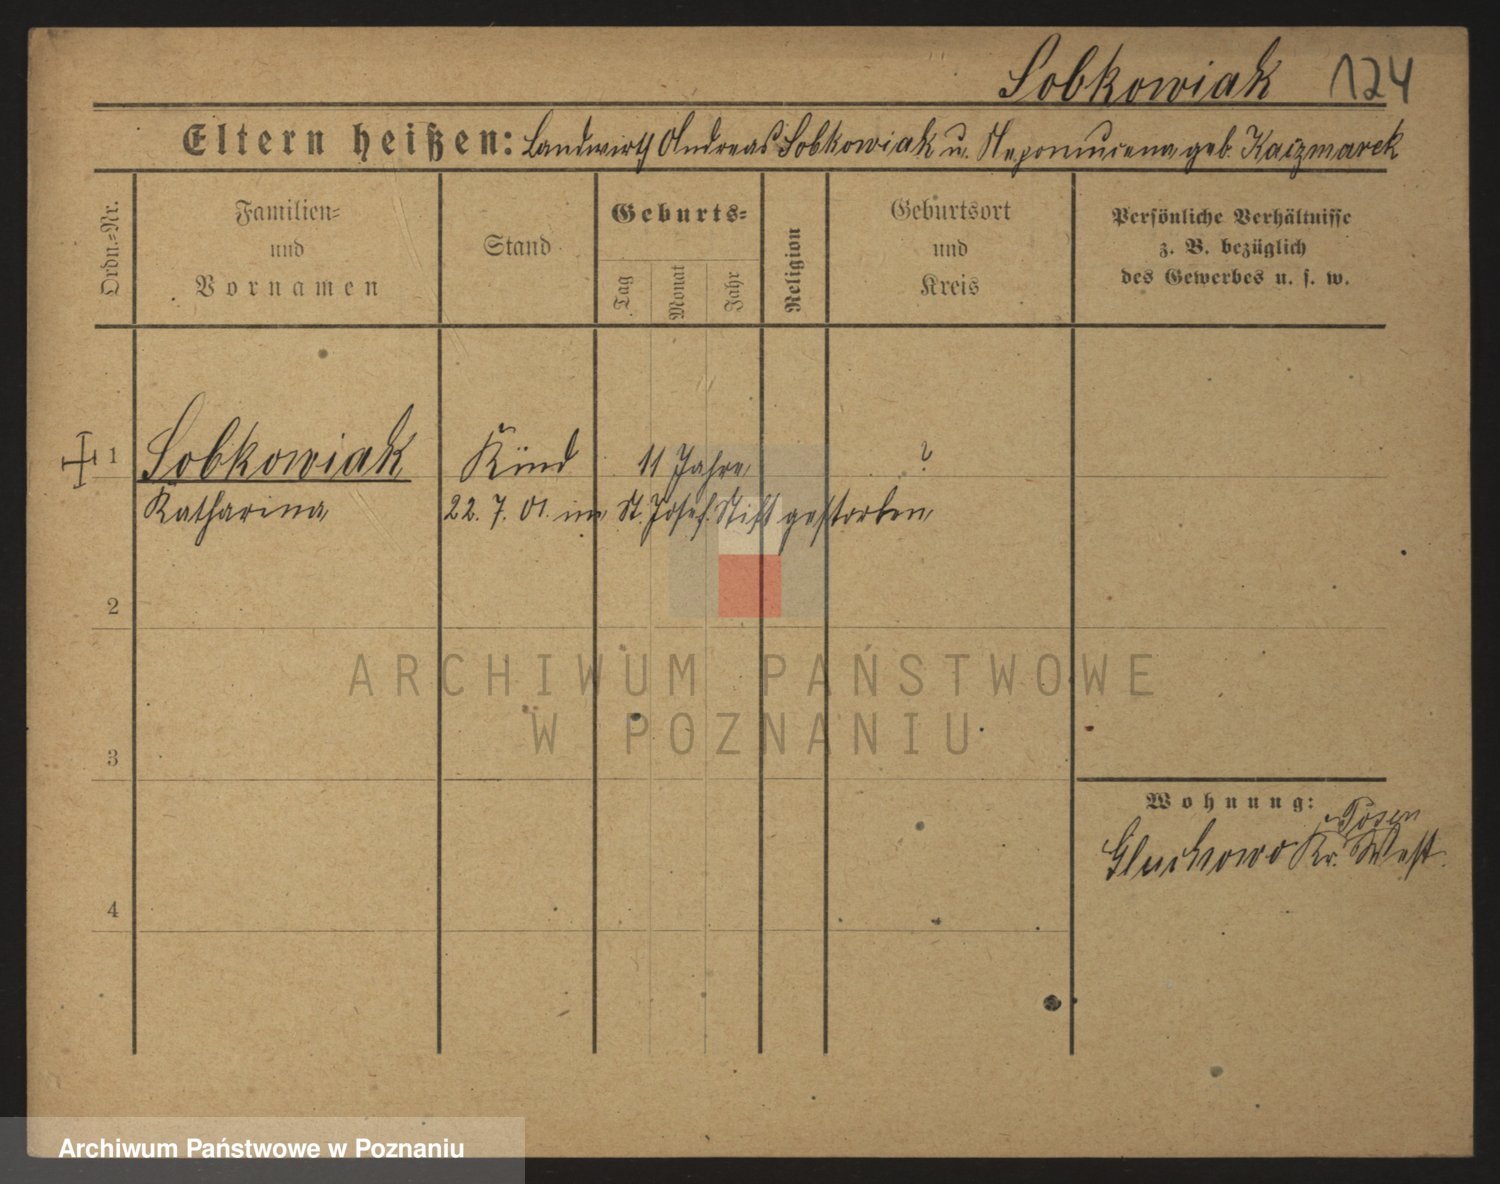 Sobkowiak 124
Eltern heißen: Landwirth Andreas Sobkowiak u. Nepomucena geb. Kaczmarek
Ordn.=Nr.
Familien=
und
Vornamen
Stand
Geburts=
Tag
Monat
Jahr
Religion
Geburtsort
und
Kreis
Persönliche Verhältnisse
z. B. bezüglich
des Gewerbes u. s. w.
1 Sobkowiak Kind 11 Jahre ?
Katharina 22. 7. 01. im St. Josef. Stift gestorben
2
ARCHIWUM PAŃSTWOWE
W POZNANIU
3
Wohnung:
Posen
Gluchowo Kr. West.
4
Archiwum Państwowe w Poznaniu